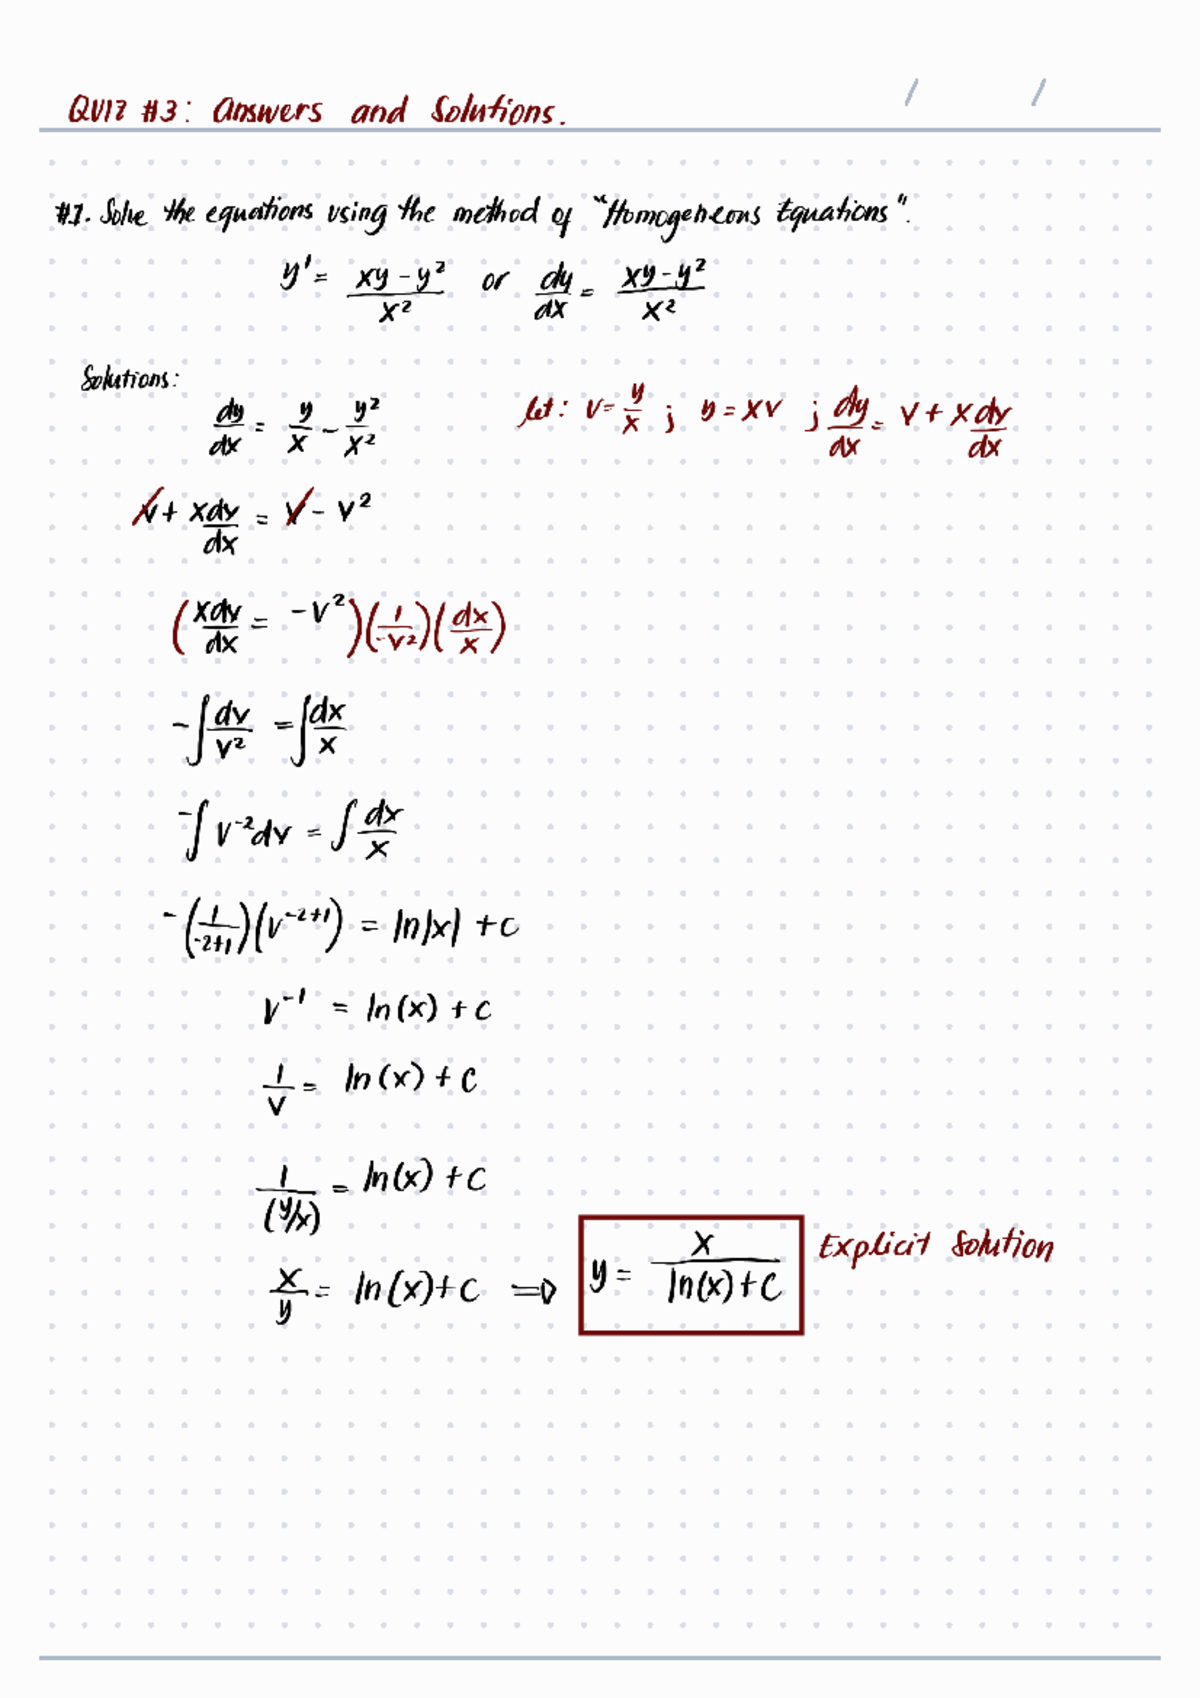 QUIZ #3: Answers and Solutions.
/ /
#1. Solve the equations using the method of "Homogeneous Equations".
y' = (xy - y²)/x² or dy/dx = (xy - y²)/x²
Solutions:
dy/dx = y/x - y²/x² let: v = y/x ; y = xv ; dy/dx = v + x dv/dx
v + xdv/dx = v - v²
(xdv/dx = -v²)(1/-v²)(dx/x)
-∫ dv/v² = ∫ dx/x
-∫ v⁻² dv = ∫ dx/x
-(1/-2+1)(v⁻²⁺¹) = ln|x| + c
v⁻¹ = ln(x) + c
1/v = ln(x) + c
1/(y/x) = ln(x) + c
x/y = ln(x) + c ⇒ y = x/(ln(x) + c) Explicit Solution